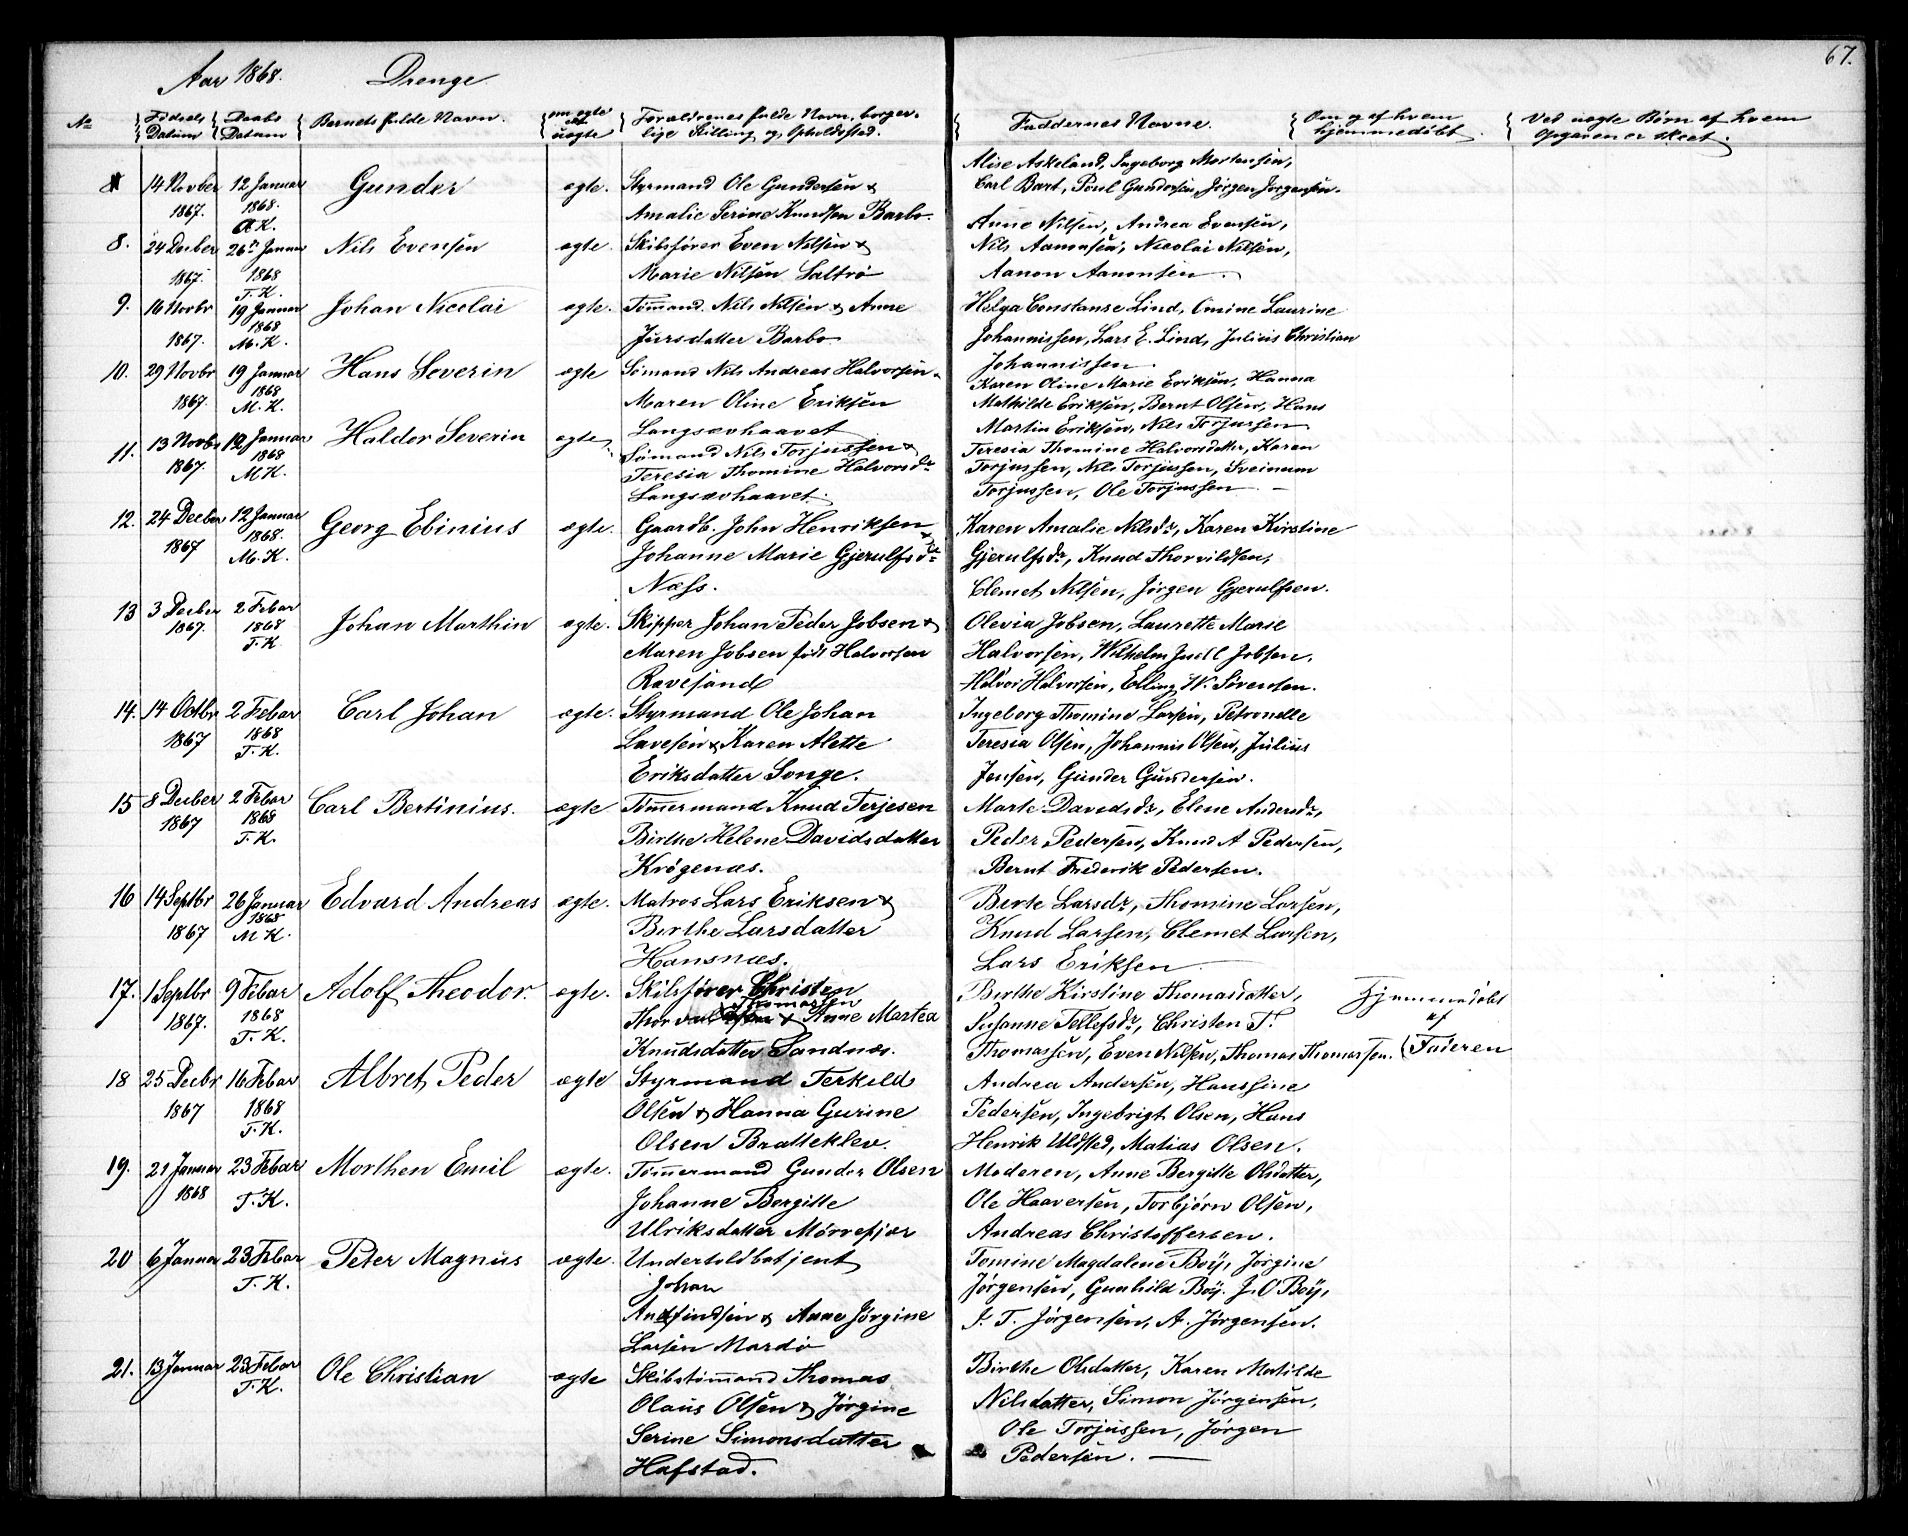 Aar 1868. Drenge. 67.
№ Fødsels Datum Daabs Datum Barnets fulde Navn. om ægte el. uægte Forældrenes fulde Navn, borgerlige Stilling og Opholdssted. Faddernes Navne. Om og af hvem hjemmedöbt. Ved uægte Børn af hvem Opgaven er skeet.
14 Novber 1867. 12 Januar 1868. A.K. Gunder ægte.
Styrmand Ole Gundersen &
Amalie Serine Knudsen Barbo.
Alise Askeland, Ingeborg Mortensen,
Carl Bart, Poul Gundersen, Jörgen Jörgensen.
8. 24 Decber 1867. 26 Januar 1868 T.K. Nils Evensen ægte.
Skibsfører Even Nilsen &
Marie Nilsen Saltrö
Anne Nilsen, Andrea Evensen,
Nils Aamonsen, Nicolai Nilsen,
Aanon Aanonsen.
9. 16 Novbr 1867. 19 Januar 1868 M.K. Johan Nicolai ægte.
Tömmand. Nils Nilsen & Anne
Jursdatter Barbo
Helga Constanse Lind, Omine Laurine
Johannissen, Lars E. Lind, Julius Christian
Johannissen.
10. 29 Novbr 1867. 19 Januar 1868 M.K. Hans Severin ægte
Sömand Nils Andreas Halvorsen &
Maren Oline Eriksen
Langsævhaavet
Karen Oline Marie Eriksen, Hanna
Mathilde Eriksen, Bernt Olsen, Hans
Martin Eriksen, Nils Torjussen
11. 13 Novbr 1867. 19 Januar 1868 M.K. Haldor Severin ægte
Sömand Nils Torjussen &
Teresia Thomine Halvorsdr
Langsævhaavet.
Teresia Thomine Halvorsdatter, Karen
Torjussen, Nils Torjussen, Sveinum
Torjussen, Ole Torjussen. —
12. 24 Decber 1867 12 Januar 1868. M.K. Georg Ebinius ægte.
Gaardb. John Henriksen &
Johanne Marie Gjerulfsdr
Næss.
Karen Amalie Nilsdr, Karen Kirstine
Gjerulfsdr, Knud Thorvildsen,
Clemet Nilsen, Jörgen Gjerulfsen.
13 3 Decber 1867. 2 Febar 1868 T.K. Johan Marthin ægte.
Skipper Johan Peder Jobsen &
Maren Jobsen född Halvorsen
Ravesand
Olevia Jobsen, Laurette Marie
Halvorsen, Wilhelm Juell Jobsen,
Halvor Halvorsen, Elling W. Sörensen.
14. 14 Octbr 1867 2 Febar 1868 T.K. Carl Johan ægte.
Styrmand Ole Johan
Lavesen & Karen Alette
Eriksdatter Songe.
Ingeborg Thomine Larsen, Petronelle
Teresia Olsen, Johannis Olsen, Julius
Jensen, Gunder Gundersen.
15 8 Decber 1867 2 Febar 1868 T.K. Carl Bertinius. ægte
Tömmermand Knud Terjesen
Birthe Helene Davidsdatter
Krögenæs.
Marte Davidsdr, Elene Andersdr,
Peder Pedersen, Knud A Pedersen,
Bernt Frederik Pedersen.
16 14 Septbr 1867 26 Januar 1868 M K. Edvard Andreas ægte.
Matros Lars Eriksen &
Birthe Larsdatter
Hansnæs.
Berte Larsdr, Thomine Larsen,
Knud Larsen, Clemet Larsen,
Lars Eriksen
17. 1 Septbr 1867. 9 Febar 1868 T.K. Adolf Theodor. ægte.
Skibsfører Christen
Thomassen
& Anne Martea
Knudsdatter Sandnæs.
Birthe Kirstine Thomasdatter,
Susanne Tellefsdr, Christen T.
Thomassen, Even Nilsen, Thomas Thomassen.
Hjemmedöbt
af
Faderen
18 25 Decbr 1867 16 Febar 1868 T.K. Albret Peder ægte
Styrmand Terkild
Olsen & Hanna Gurine
Olsen Bratteklev.
Andrea Andersen, Hanssine
Pedersen, Ingebrigt Olsen, Hans
Henrik Uldsted, Matias Olsen.
19. 21 Januar 1868 23 Febar T.K. Morthen Emil ægte.
Tömmermand Gunder Olsen
Johanne Bergitte
Ulriksdatter Mörrefjær
Moderen, Anne Bergitte Olsdatter,
Ole Haaversen, Torbjörn Olsen,
Andreas Christoffersen.
20 6 Januar 23 Febar T.K. Peter Magnus ægte.
Undertoldbetjent
Johan
Anfindsen & Anne Jörgine
Larsen Mardö
Tomine Magdalene Böy, Jörgine
Jörgensen, Gunhild Böy. J. O Böy,
J. T. Jörgensen, A. Jörgensen.
21. 13 Januar 23 Febar T.K. Ole Christian ægte
Skibstömmand Thomas
Olaus Olsen & Jörgine
Serine Simonsdatter
Hafstad.
Birthe Olsdatter, Karen Matilde
Nilsdatter, Simon Jörgensen,
Ole Torjussen, Jörgen
Pedersen. —